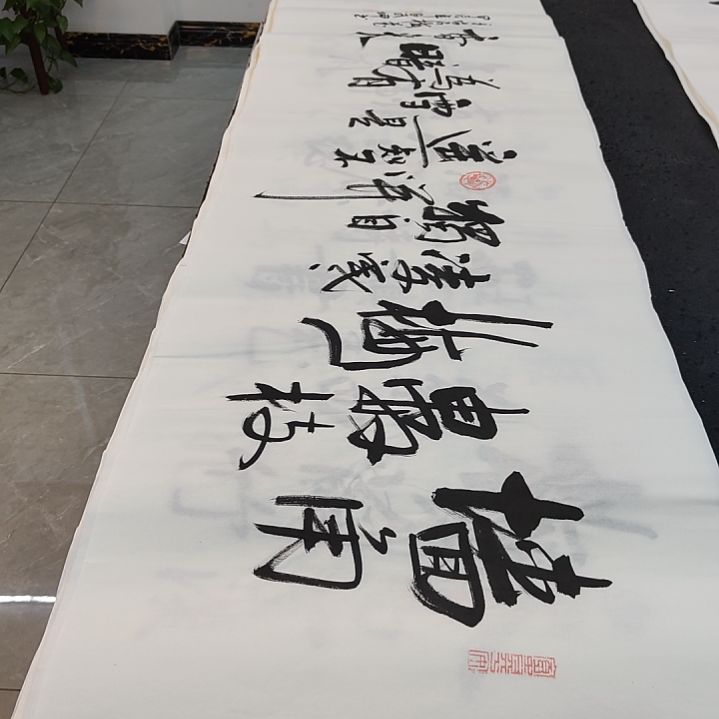 墙角
数枝
梅
凌寒
独
自开
遥知不
是雪
为有
暗
香来